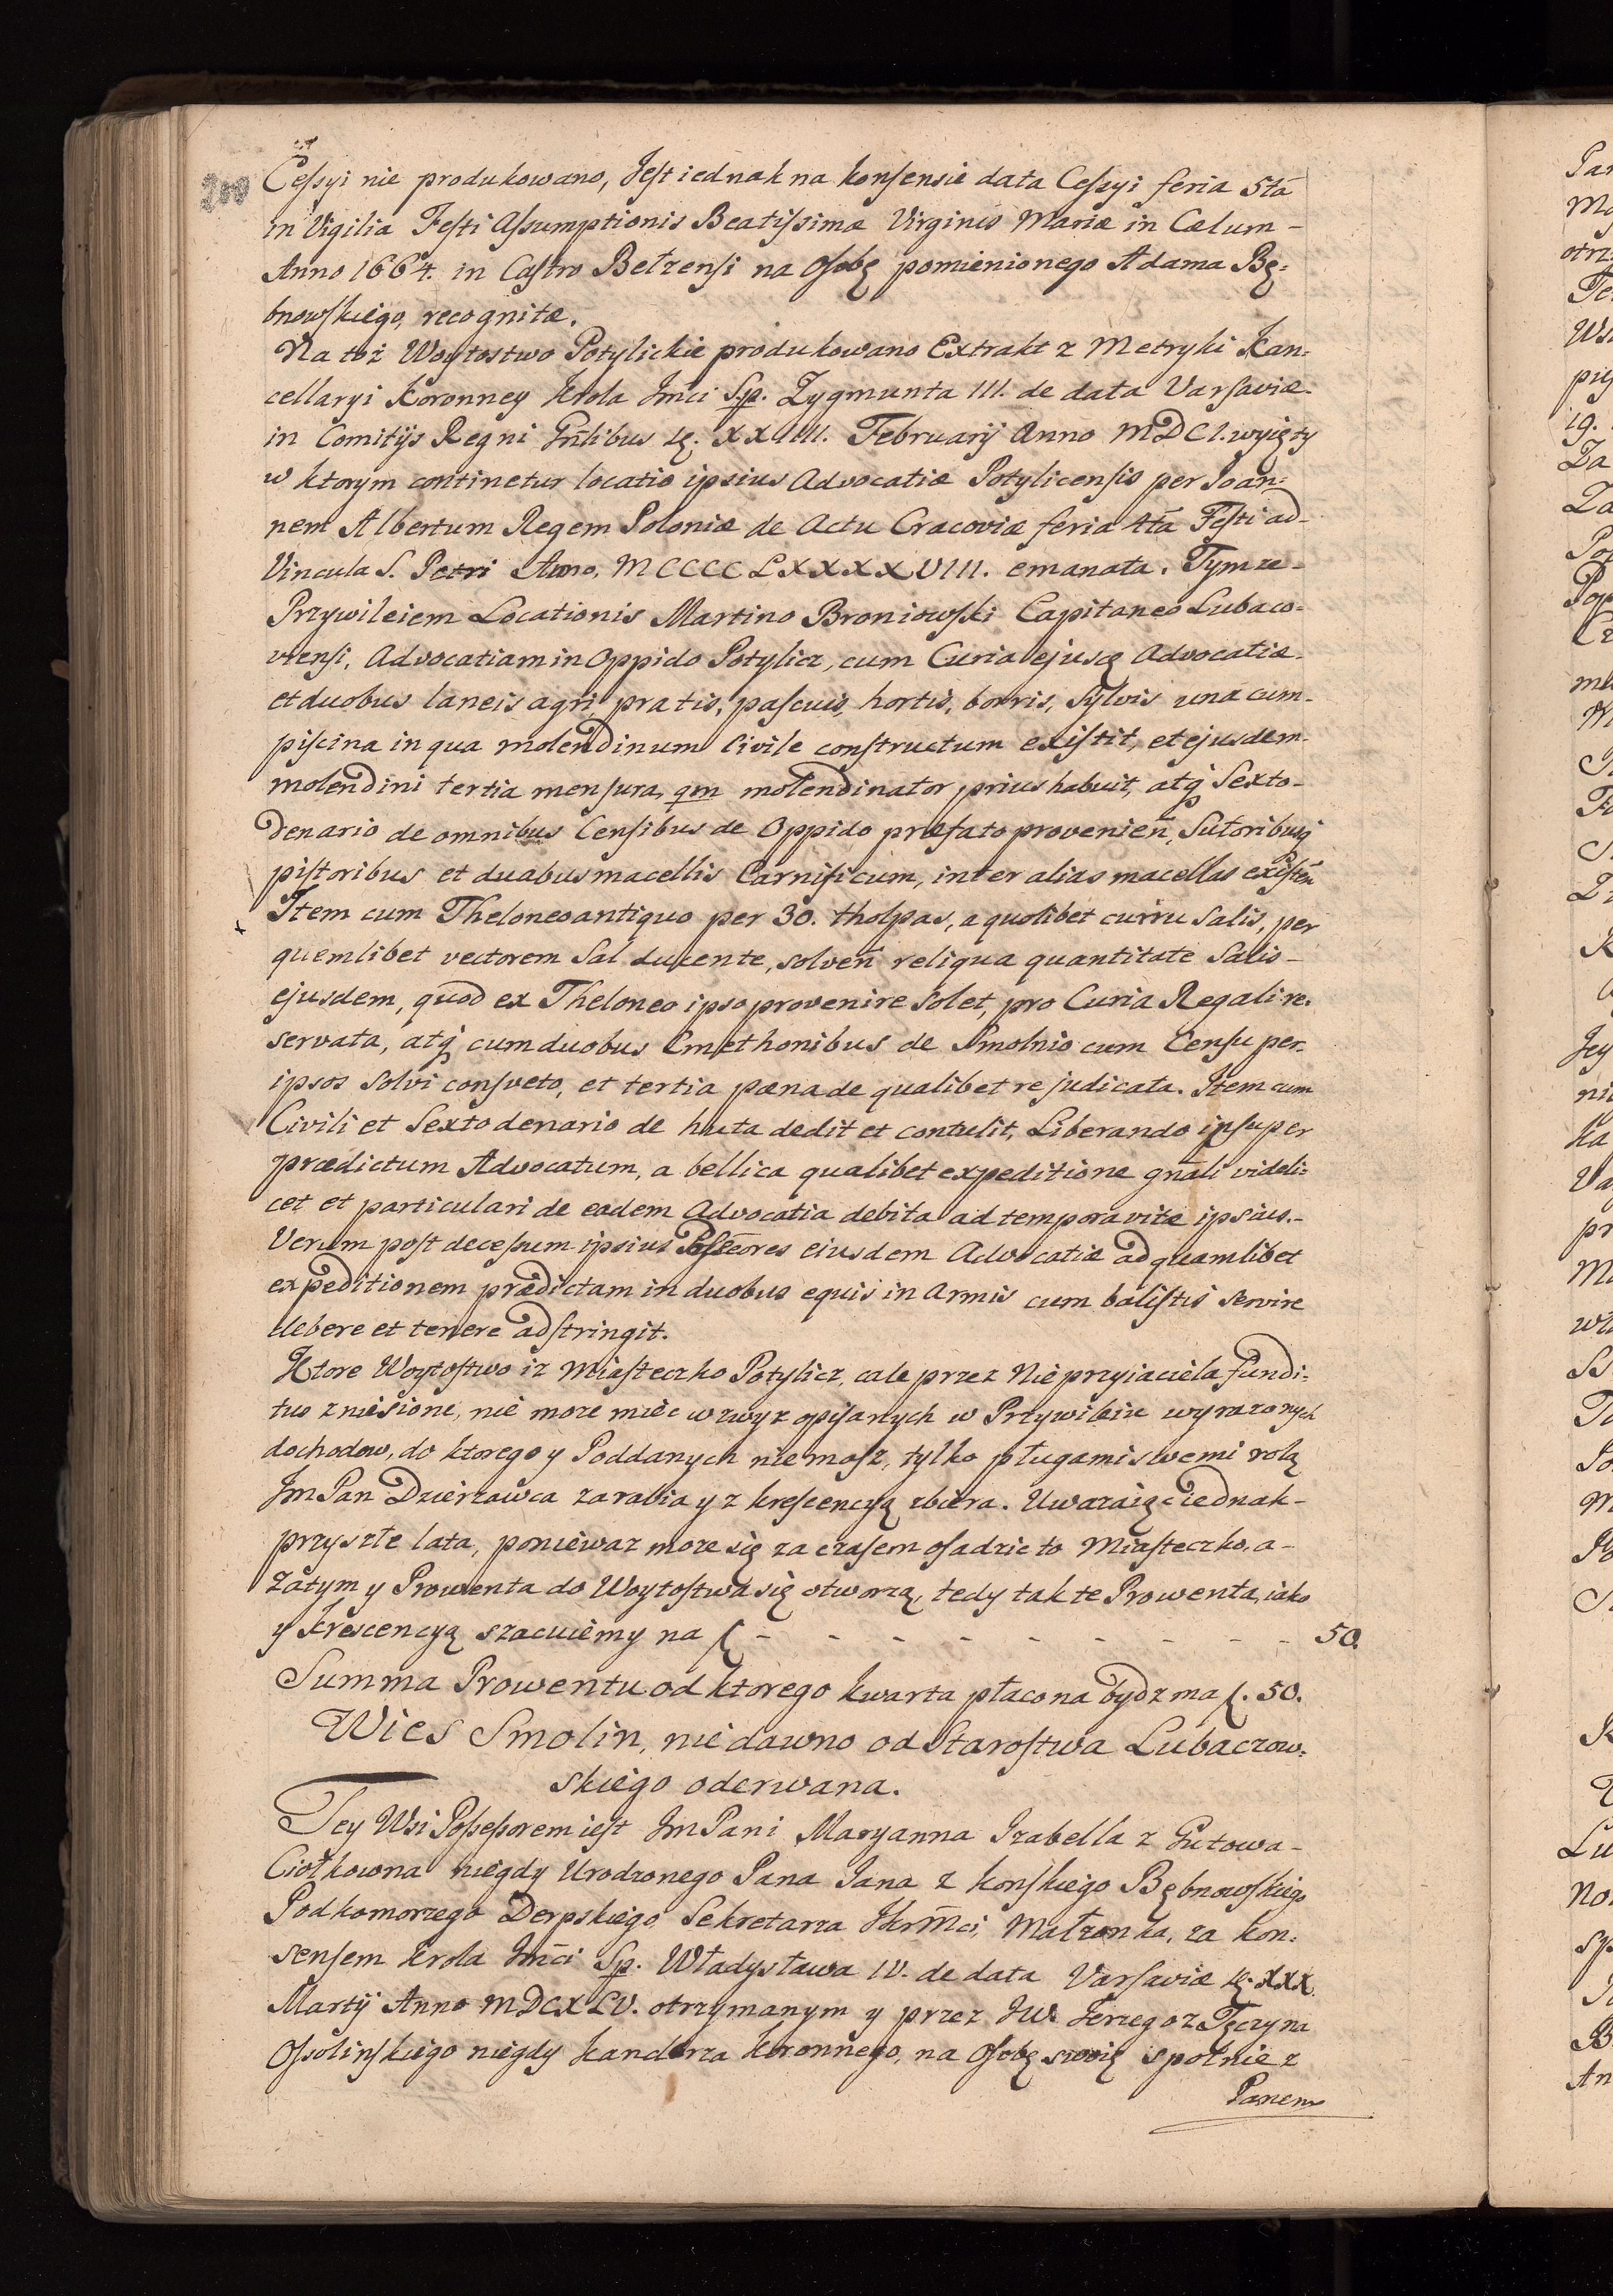 200
Cessyi nie produkowano, Jest iednak na konsensie data Cessyi feria 5ta
in Vigilia Festi Assumptionis Beatissimæ Virginis Mariæ in Cælum –
Anno 1664. in Castro Bełzensi na Osobę pomienionego Adama Bę:
bnowskiego, recognitæ.
Na toż Woytostwo Potylickie produkowano Extrakt z Metryki Kan:
cellaryi Koronney Krola Jmci Sp. Zygmunta III. de data Varsaviæ.
in Comitijs Regni Gnlibus XXIIII. Februarij Anno MDCI. wyięty
w ktorym continetur locatio ipsius Advocatiæ Potylicensis per Joan:
nem Albertum Regem Poloniæ de Actu Cracoviæ feria 4ta Festi ad–
Vincula S. Petri Anno, MCCCCLXXXXVIII. emanata. Tymze–
Przywileiem Locationis Martino Broniowski Capitaneo Lubaco-
viensi, Advocatiam in Oppido Potylicz, cum Curia ejusq Advocatiæ.
et duobus laneis agri pratis, pascuis, hortis, borris, Sylvis una cum–
piscina in qua molendinum Civile constructum existit, et ejusdem–
molendini tertia mensura, qm molendinator prius habuit, atq Sexto–
denario de omnibus Censibus de Oppido præfato provenien, Sutoribusq
pistoribus et duabus macellis Carnificum, inter alias macellas existen
Item cum Theloneo antiquo per 30. tholpas, a quolibet curru Salis, per
quemlibet vectorem Sal ducente, solven reliqua quantitate Salis–
ejusdem, quod ex Theloneo ipso provenire solet, pro Curia Regali re.
servata, atq cum duobus Cmethonibus de Smolnio cum Censu per.
ipsos solvi consveto, et tertia pæna de qualibet re judicata. Item cum
Civili et Sexto denario de huta dedit et contulit, Liberando insuper
prædictum Advocatum, a bellica qualibet expeditione gnali videli:
cet et particulari de eadem Advocatia debita ad tempora vitæ ipsius.–
Verum post decessum ipsius Possesores eiusdem Advocatiæ ad quamlibet
expeditionem prædictam in duobus equis in Armis cum balistis servire
debere et tenere adstringit.
Ktore Woytostwo iz Miasteczko Potylicz, cale przez Nieprzyiaciela fundi:
tus zniesione, nie moze miec wzwyz opisanych w Przywileiu wyrazonych
dochodow, do ktorego y Poddanych niemasz, tylko pługami swemi rolą
Jm Pan Dzierzawca zarabia y z krescencyą zbiera. Uwazaiąc iednak–
przyszłe lata, poniewaz moze się za czasem osadzic to Miasteczko, a–
zatym y Prowenta do Woytostwa się otworzą, tedy tak te Prowenta, iako
y Krescencyą szacuiemy na f – – – – – – – – – 50.
Summa Prowentu od ktorego kwarta płacona bydz ma f. 50.
Wies Smolin, nie dawno od Starostwa Lubaczow:
skiego oderwana.
Tey Wsi Possessorem iest Jm Pani Maryanna Izabella z Gutowa–
Ciołkowna niegdy Urodzonego Pana Jana z Konskiego Bębnowskiego
Podkomorzego Derpskiego Sekretarza JKrmci, Małzonka, za kon:
sensem Krola Jmci Sp. Władysława IV. de data Varsaviæ XXX.
Martij Anno MDCXLV. otrzymanym y przez JW. Jerzego z Tęczyna
Ossolinskiego niegdy Kanclerza Koronnego, na Osobę swoię społnie z
Panem